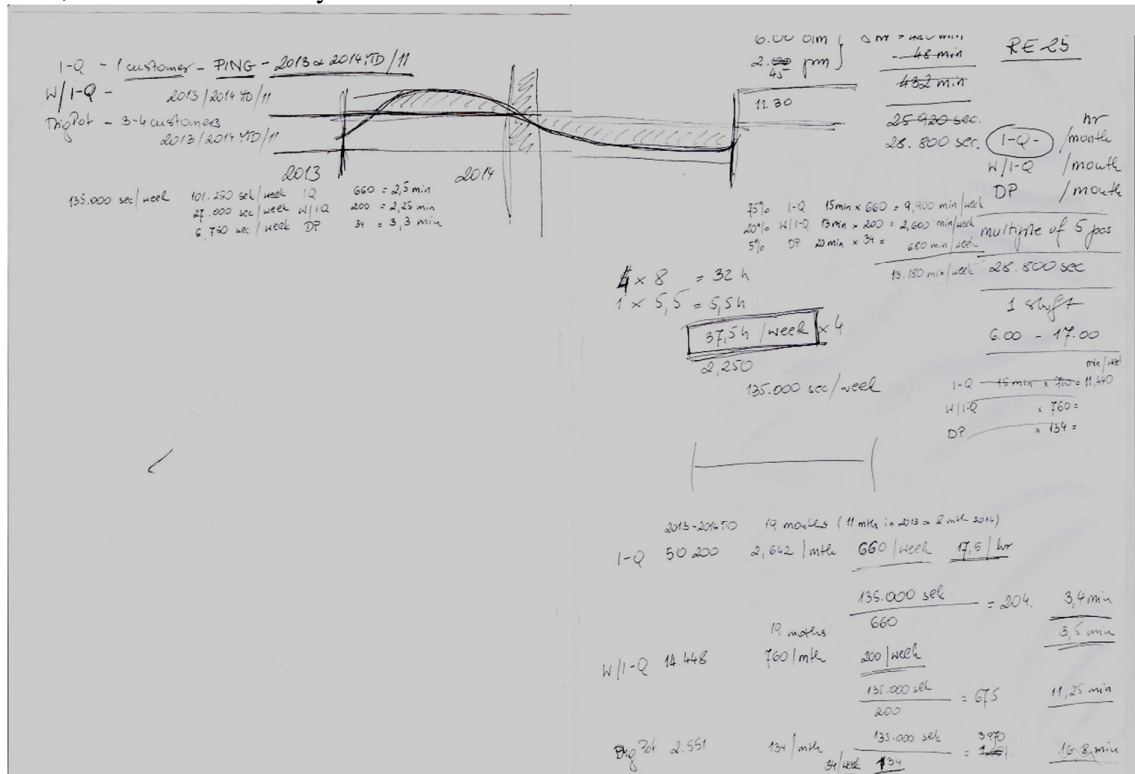 I-Q - 1 customer - PING - 2013 & 2014 YTD/11
W/I-Q - 2013/2014 YTD/11
Big Pot - 3-4 customers
2013/2014 YTD/11
2013
2014
135.000 sec/week
101.250 sek/week IQ 660 = 2,5 min
27.000 sec/week W/IQ 200 = 2,25 min
6,750 sek/week DP 34 = 3,3 min
6.00 am
2.45 pm
11.30
- 48 min
432 min
25 920 sec.
28.800 sec.
RE-25
hr
I-Q - /month
W/I-Q /month
DP /month
75% I-Q 15min x 660 = 9,900 min/week
20% W/I-Q 13min x 200 = 2,600 min/week
5% DP 20 min x 34 = 680 min/week
13.180 min/week
multiple of 5 pos
28.800 sec
1 shift
6.00 - 17.00
4 x 8 = 32 h
1 x 5,5 = 5,5h
37,5h /week x 4
2,250
135.000 sec/week
min/week
I-Q 15 min x 760 = 11,440
W/I-Q x 760 =
DP x 134 =
2013-2014 YTD 19 months (11 mths in 2013 & 8 mth 2014)
I-Q 50 200 2,642 /mth 660 /week 17,6 / hr
135.000 sek
660
= 204. 3,4 min
3,5 min
19 months
W/I-Q 14.448 760/mth 200/week
135.000 sek
200
= 675 11,25 min
Big Pot 2.551 134/mth 34/week
135.000 sek
134
= 3970 16.8 min